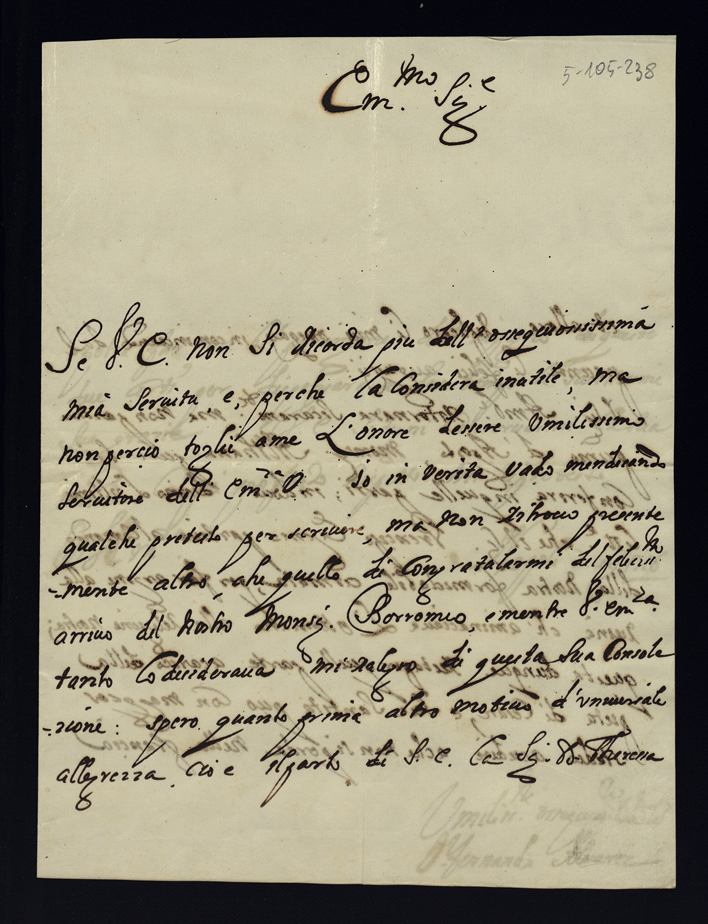 5-105-238
Em.mo Sig.e
Se V. E. non si ricorda piu dell' ossequiosissima
mia servita e, perche la considera inutile, ma
non percio toglie ame L'onore dessere Umilissimo
servitore dell' Em.za V. Io in verita vado mendicando
qualche pretesto per scrivere, ma non ritrovo presente
-mente altro, che quello di Congratularmi del feliciss.mo
arrivo del nostro Monsig. Borromeo, e mentre V. Em.za
tanto lo desiderava mi ralegro di questa sua Consola
-zione: spero quanto prima altro motivo d'universale
allegrezza cio e il parto di S. E. la Sig. D. Theresa